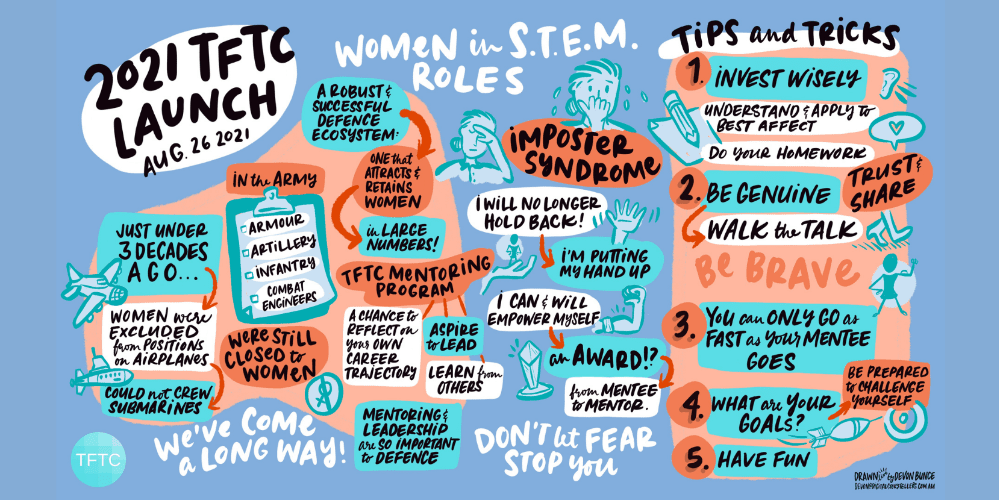 2021 TFTC
LAUNCH
AUG. 26 2021
WOMEN in S.T.E.M.
ROLES
A ROBUST &
SUCCESSFUL
DEFENCE
ECOSYSTEM:
ONE that
ATTRACTS &
RETAINS
WOMEN
in LARGE
NUMBERS!
IN the ARMY
ARMOUR
ARTILLERY
INFANTRY
COMBAT
ENGINEERS
WERE STILL
CLOSED to
WOMEN
JUST UNDER
3 DECADES
AGO...
WOMEN were
EXCLUDED
from POSITIONS
on AIRPLANES
COULD not CREW
SUBMARINES
WE'VE COME
a LONG WAY!
TFTC
TFTC MENTORING
PROGRAM
A CHANCE to
REFLECT on
your OWN
CAREER
TRAJECTORY
ASPIRE
to LEAD
LEARN from
OTHERS
MENTORING &
LEADERSHIP
are SO IMPORTANT
to DEFENCE
IMPOSTER
SYNDROME
I WILL NO LONGER
HOLD BACK!
I'M PUTTING
MY HAND UP
I CAN & WILL
EMPOWER MYSELF
an AWARD!?
from MENTEE
to MENTOR.
DON'T let FEAR
STOP YOU
TIPS and TRICKS
1. INVEST WISELY
UNDERSTAND & APPLY to
BEST AFFECT
DO YOUR HOMEWORK
2. BE GENUINE
TRUST &
SHARE
WALK the TALK
BE BRAVE
3. YOU can ONLY GO as
FAST as YOUR MENTEE
GOES
BE PREPARED
to CHALLENGE
YOURSELF
4. WHAT are YOUR
GOALS?
5. HAVE FUN
DRAWN live by DEVON BUNCE